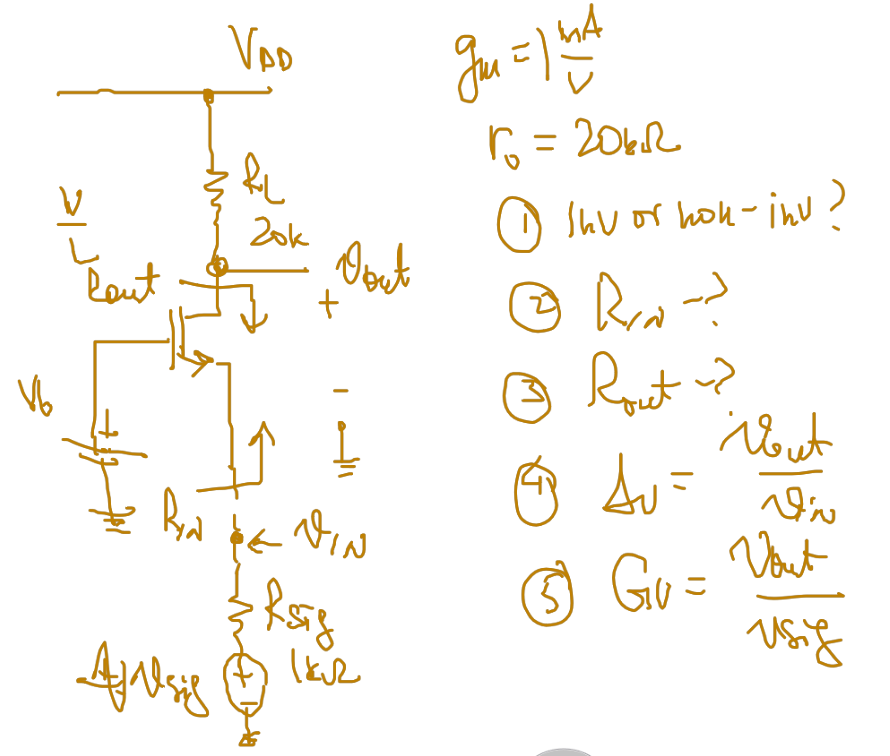 V_DD
R_L
20k
W/L
R_out
v_out
+
-
V_b
+
R_IN
v_IN
R_sig
1kΩ
v_sig
+
-
g_m = 1 mA/V
r_o = 20kΩ
① Inv or non-inv?
② R_IN -?
③ R_out -?
④ A_v = v_out/v_in
⑤ G_v = v_out/v_sig